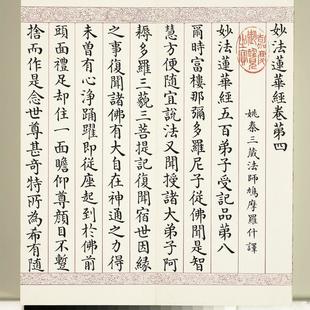 妙法蓮華經卷第四
姚秦三藏法師鳩摩羅什譯
妙法蓮華經五百弟子受記品第八
爾時富樓那彌多羅尼子從佛聞是智
慧方便隨宜說法又聞授諸大弟子阿
耨多羅三藐三菩提記復聞宿世因緣
之事復聞諸佛有大自在神通之力得
未曾有心淨踊躍即從座起到於佛前
頭面禮足却住一面瞻仰尊顏目不暫
捨而作是念世尊甚奇特所為希有隨